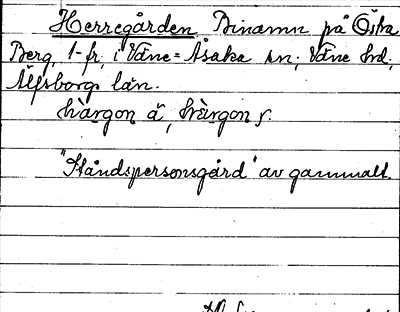 Herregården, Binamn på Östra
Berg, 1-fr, i Väne-Åsaka sn; Väne hd;
Älfsborgs län.
hàrgon ä, hàrgon r.
"Ståndspersonsgård" av gammalt.